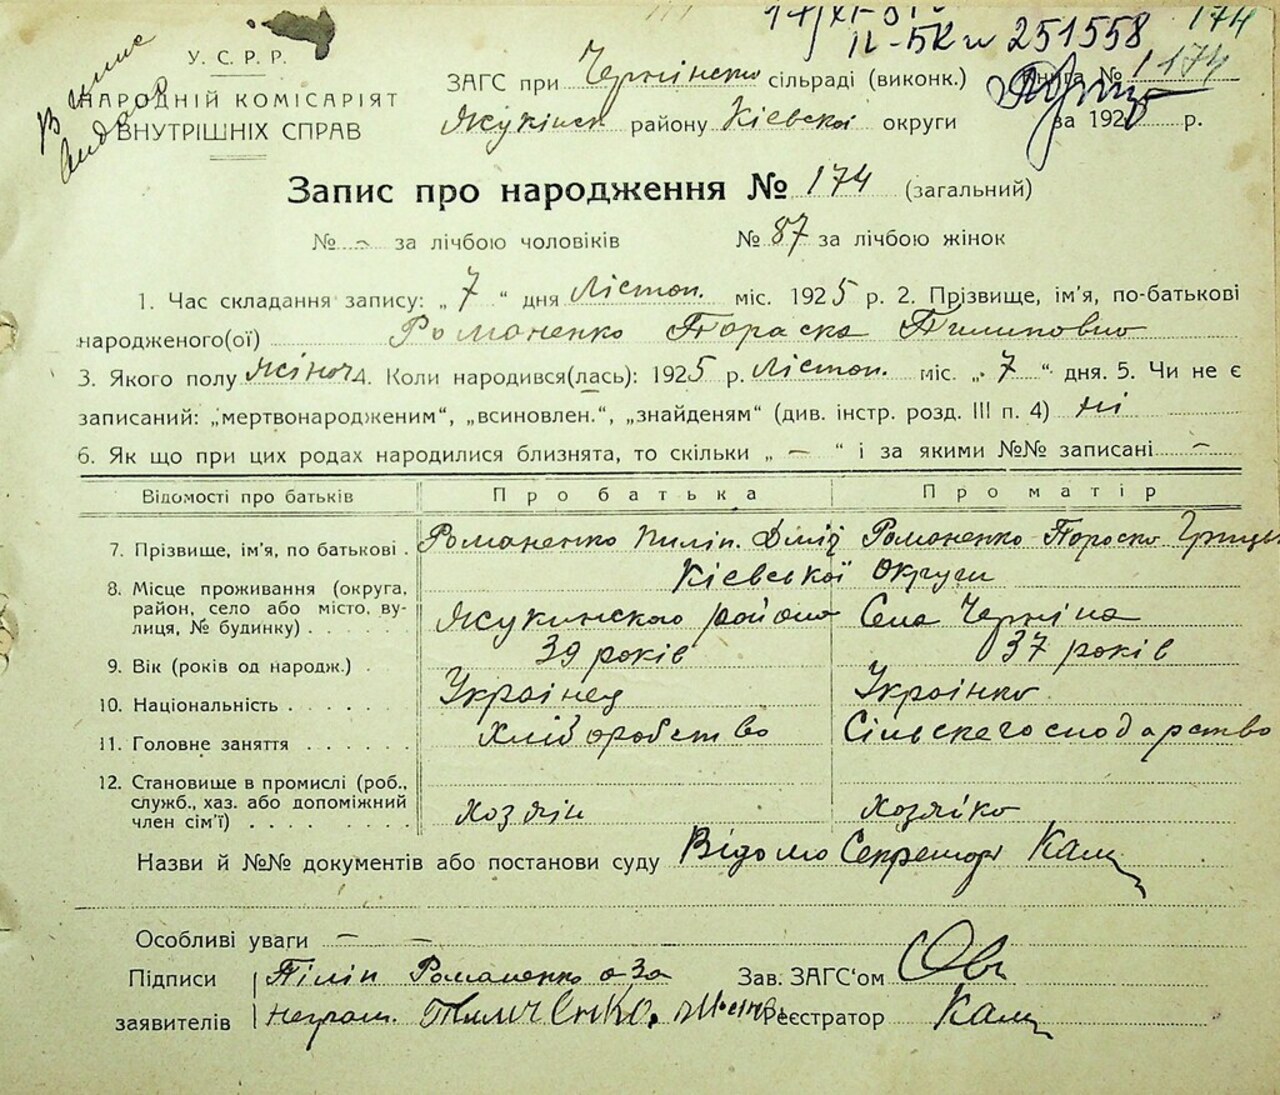 174
ІІ-БК № 251558
У. С. Р. Р.
НАРОДНІЙ КОМІСАРІЯТ
ВНУТРІШНІХ СПРАВ
ЗАГС при Чернінской сільраді (виконк.) Книга № 1 174
Жукінск. району Кіевскої округи за 192 р.
Запис про народження № 174 (загальний)
№ - за лічбою чоловіків № 87 за лічбою жінок
1. Час складання запису: „ 7 “ дня Лістоп. міс. 1925 р. 2. Прізвище, ім'я, по-батькові
народженого(ої) Романенко Параска Пилиповна
3. Якого полу жіноч. 4. Коли народився(лась): 1925 р. Лістоп. міс. „ 7 “ дня. 5. Чи не є
записаний: „мертвонародженим“, „всиновлен.“, „знайденям“ (див. інстр. розд. III п. 4) ні
6. Як що при цих родах народилися близнята, то скільки „ — “ і за якими №№ записані —
Відомості про батьків Про батька Про матір
7. Прізвище, ім'я, по батькові . Романенко Пиліп. Дміт Романенко Пороска Гриць
8. Місце проживання (округа, Кіевської округи
район, село або місто, ву-
лиця, № будинку) . . . . . Жукинского района Села Черніна
9. Вік (років од народж.) . 39 років 37 років
10. Національність . . . . . . Украінец Украінка
11. Головне заняття . . . . . . Хліборобство Сільскегосподарство
12. Становище в промислі (роб.,
служб., хаз. або допоміжний
член сім'ї) . . . . . . . . . Хозяін Хозяіка
Назви й №№ документів або постанови суду Відомо Секретарь Кащ
Особливі уваги — —
Підписи Піліп Романенко а за Зав. ЗАГС‘ом
заявителів неграм. Тимченко. Реєстратор Кащ